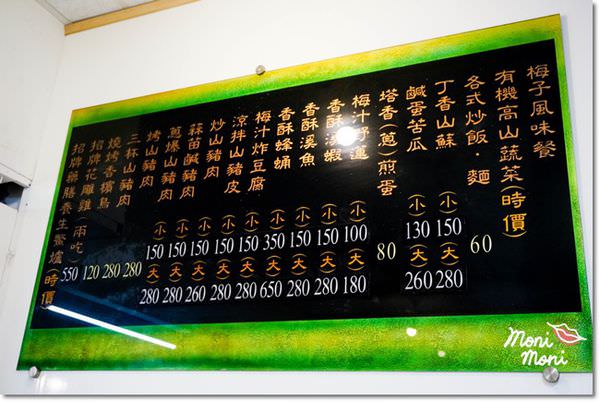 梅子風味餐
有機高山蔬菜(時價)
各式炒飯．麵 60
丁香山蘇 (小) 150 (大) 280
鹹蛋苦瓜 (小) 130 (大) 260
塔香(蔥)煎蛋 80
梅汁野蓮 (小) 100 (大) 180
香酥溪蝦 (小) 150 (大) 280
香酥溪魚 (小) 150 (大) 280
香酥蜂蛹 (小) 350 (大) 650
梅汁炸豆腐 (小) 150 (大) 280
涼拌山豬皮 (小) 150 (大) 280
炒山豬肉 (小) 150 (大) 260
蒜苗鹹豬肉 (小) 150 (大) 280
蔥爆山豬肉 (小) 150 (大) 280
烤山豬肉 280
三杯山豬肉 280
燒烤香檳鳥 120
招牌花雕雞(兩吃) 550
招牌藥膳養生鱉爐(時價)
Moni
Moni